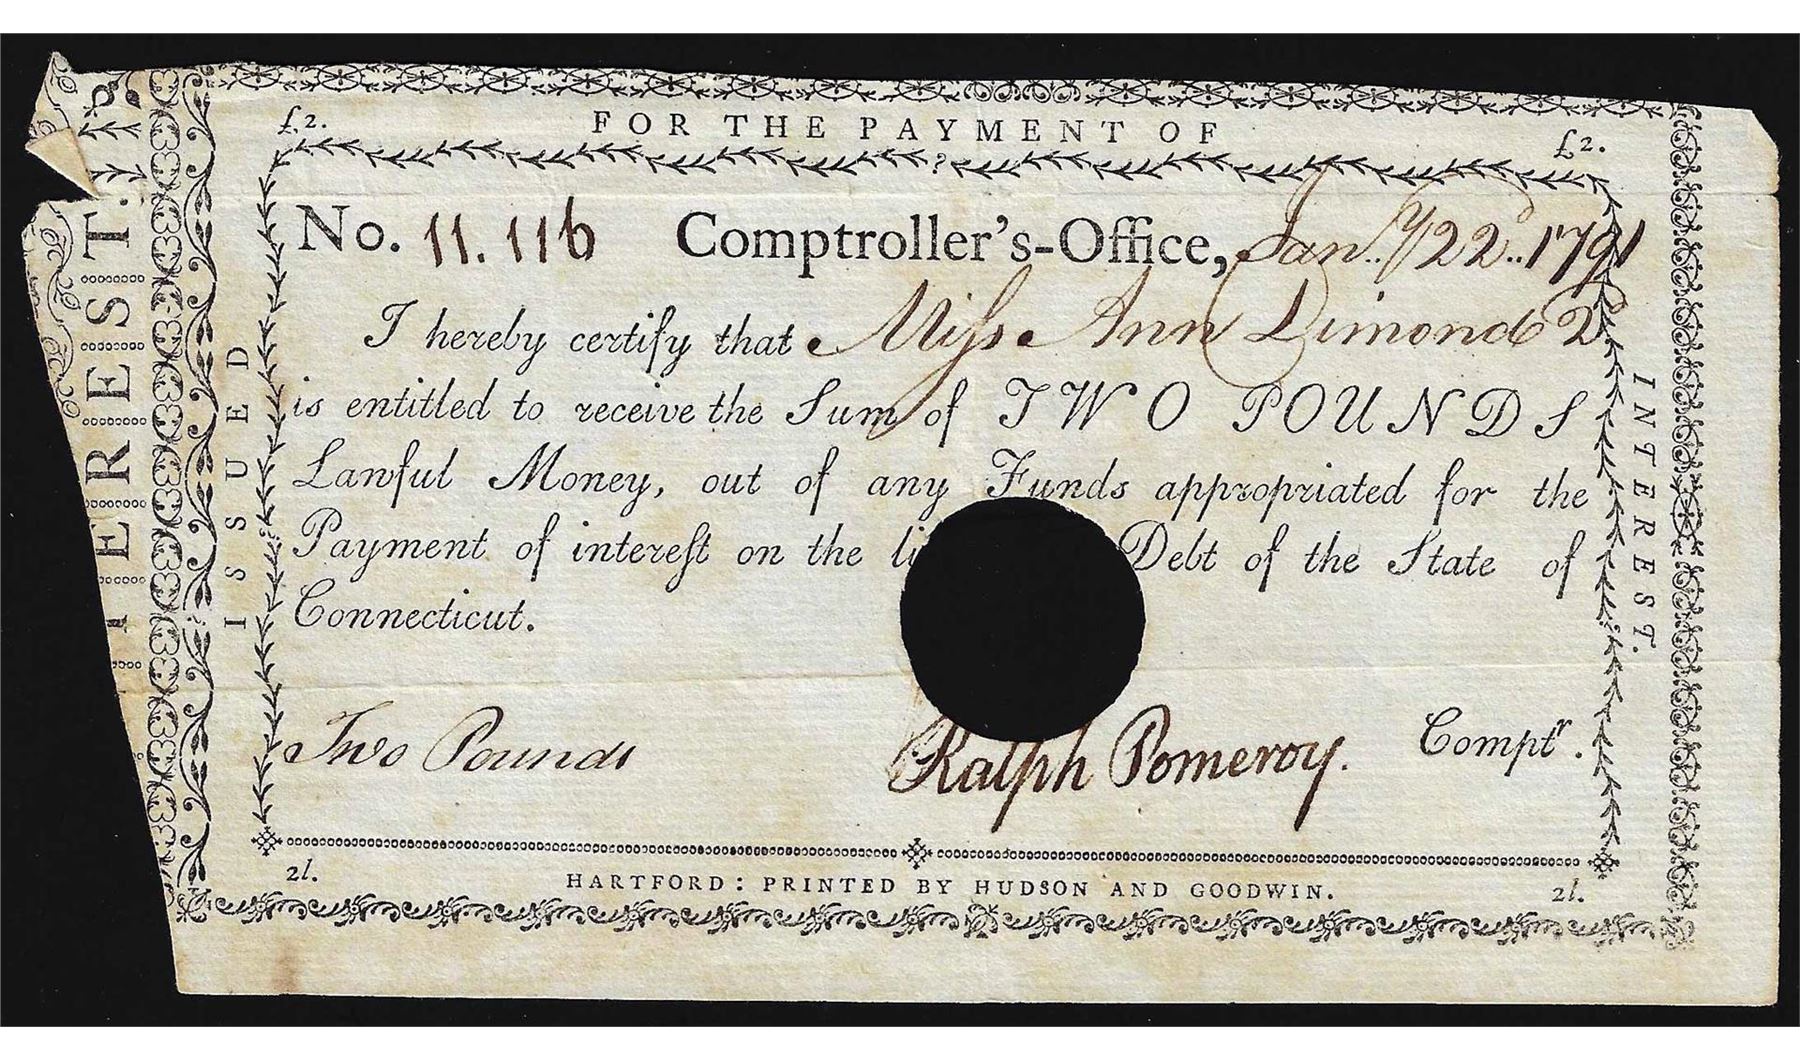 £2. FOR THE PAYMENT OF £2.
No. 11.116 Comptroller's-Office, Jany. 22d.. 1791
I hereby certify that Miſs Ann Dimond
is entitled to receive the Sum of TWO POUNDS
Lawful Money, out of any Funds appropriated for the
Payment of intereſt on the li Debt of the State of
Connecticut.
Two Pounds Ralph Pomeroy. Comptr.
2l. HARTFORD: PRINTED BY HUDSON AND GOODWIN. 2l.
ISSUED
INTEREST.
TEREST.